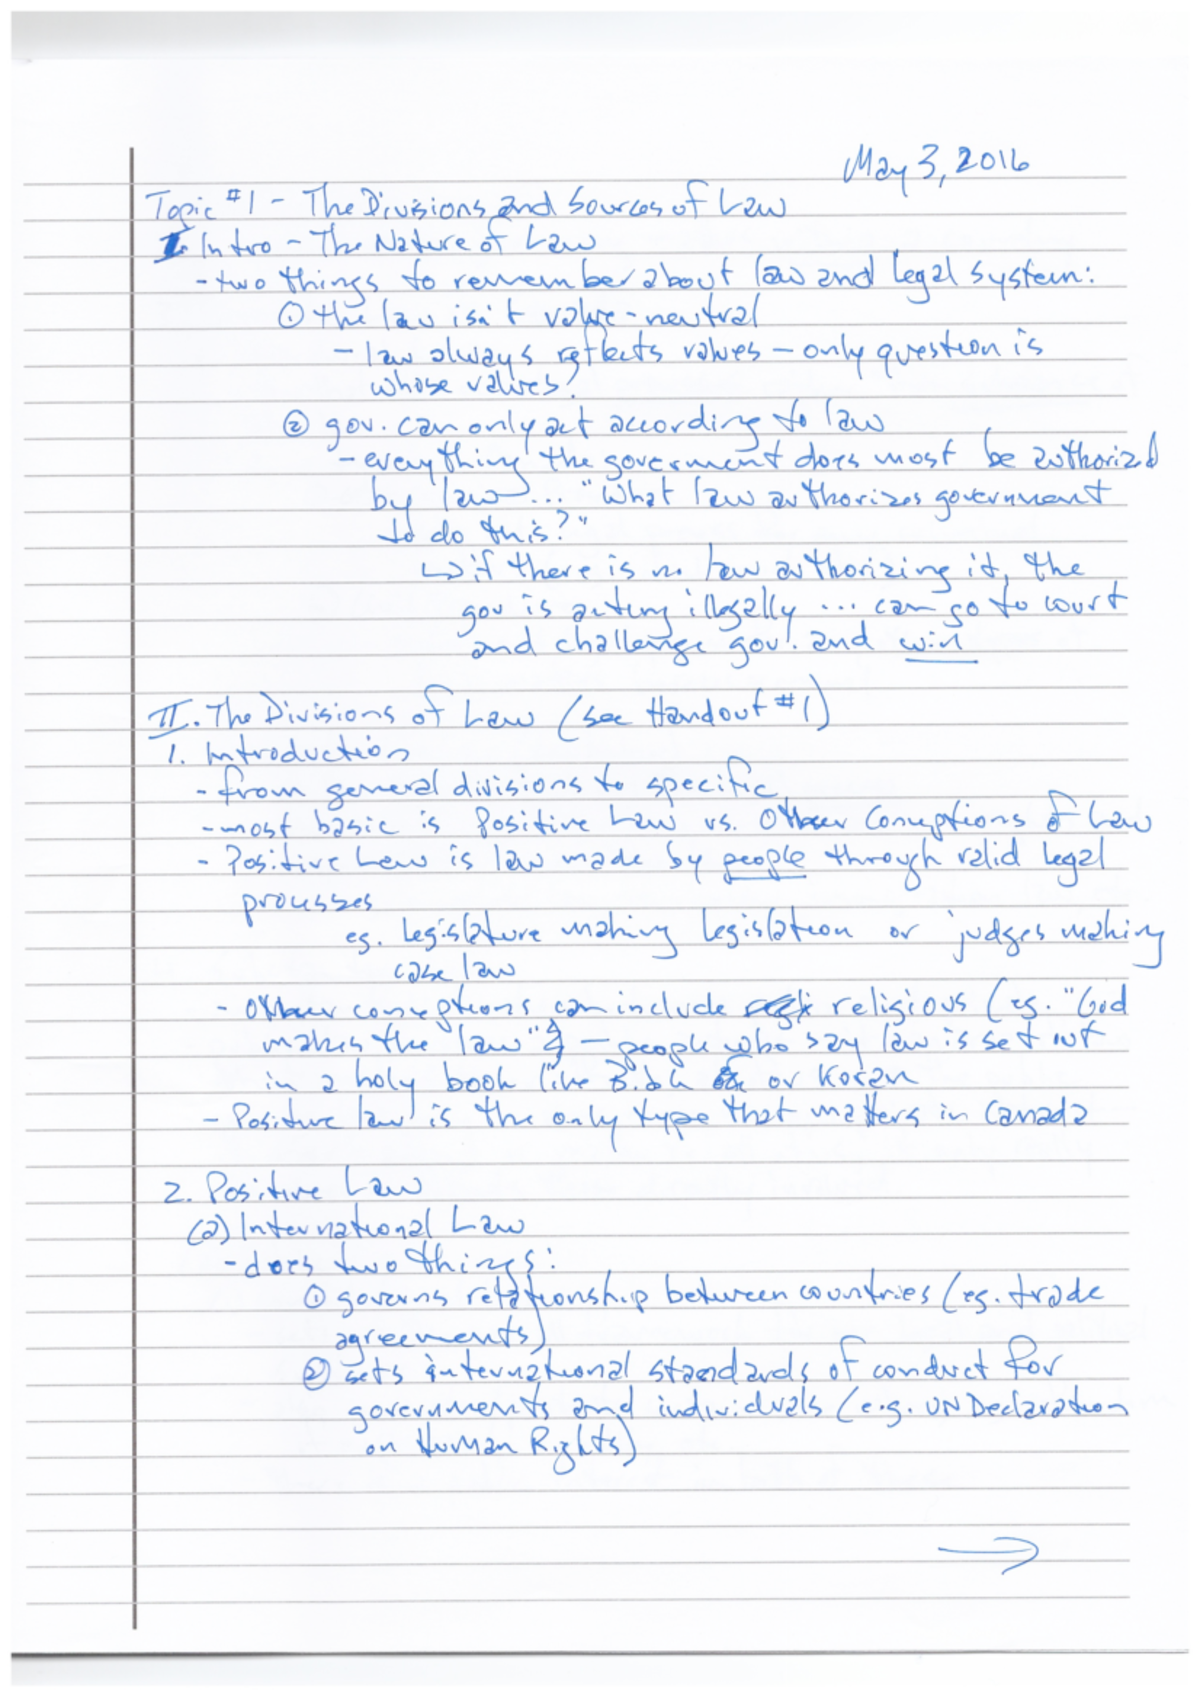 May 3, 2016
Topic #1 - The Divisions and Sources of Law
I. Intro - The Nature of Law
- two things to remember about law and legal system:
① the law isn't value-neutral
- law always reflects values - only question is
whose values?
② gov. can only act according to law
- everything the government does most be authorized
by law... "What law authorizes government
to do this?"
↳ if there is no law authorizing it, the
gov is acting illegally ... can go to court
and challenge gov. and win
II. The Divisions of Law (see Handout #1)
1. Introduction
- from general divisions to specific
- most basic is Positive Law vs. Other Conceptions of Law
- Positive Law is law made by people through valid legal
processes
eg. legislature making legislation or judges making
case law
- Other conceptions can include religious (eg. "God
makes the law") - people who say law is set out
in a holy book like Bible or Koran
- Positive law is the only type that matters in Canada
2. Positive Law
(a) International Law
- does two things:
① governs relationship between countries (eg. trade
agreements)
② sets international standards of conduct for
governments and individuals (e.g. UN Declaration
on Human Rights)
→